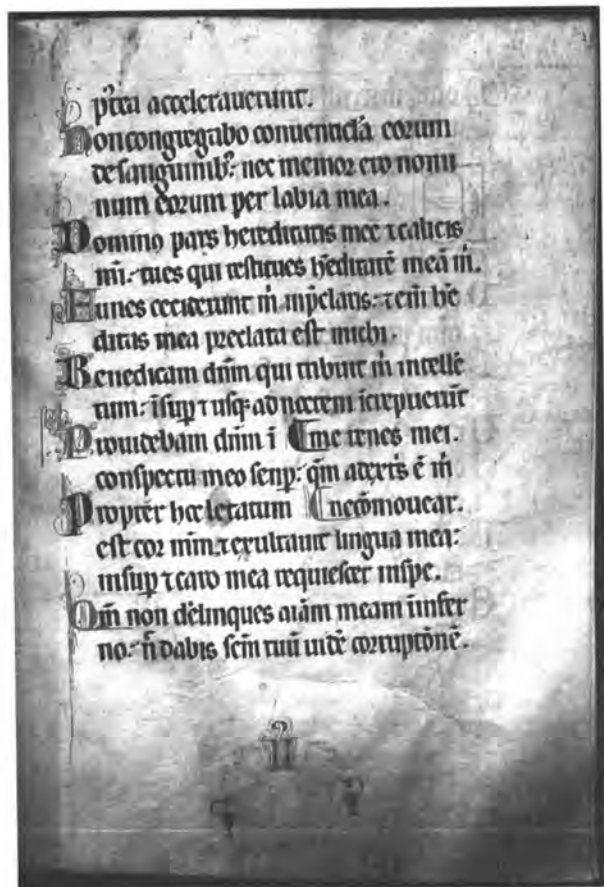 pꝰtea accelerauerunt.
Non congregabo conuenticła eorum
de sanguinibꝰ: nec memor ero nomi
num eorum per labia mea.
Dominꝰ pars hereditatis mee ⁊ calicis
mī: tu es qui restitues h̄editatē meā m̄.
Funes ceciderunt m̄ inp̄claris: ⁊ em̄ h̄e
ditas mea preclara est michi.
Benedicam dnm̄ qui tribuit m̄ intellē
tum: īsuꝑ ⁊ usqꝫ ad noctem īcrepuerūt
Prouidebam dnm̄ ī me renes mei.
conspectu meo semꝑ: qm̄ a dextris ē m̄
Propter hoc letatum ne cōmouear.
est cor mm̄ ⁊ exultauit lingua mea:
insuꝑ ⁊ caro mea requiescet in spe.
Qm̄ non dēlinques aīam meam ī infer
no: n̄ dabis scm̄ tuū uidē corruptōnē.
II